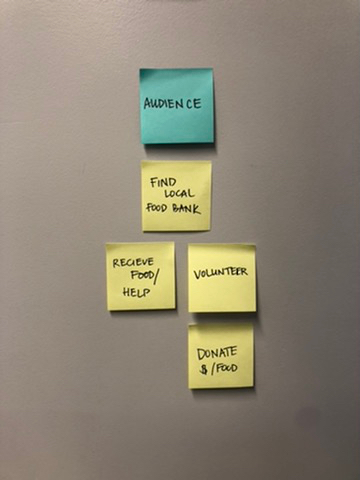 AUDIENCE
FIND
LOCAL
FOOD BANK
RECIEVE
FOOD/
HELP
VOLUNTEER
DONATE
$/FOOD